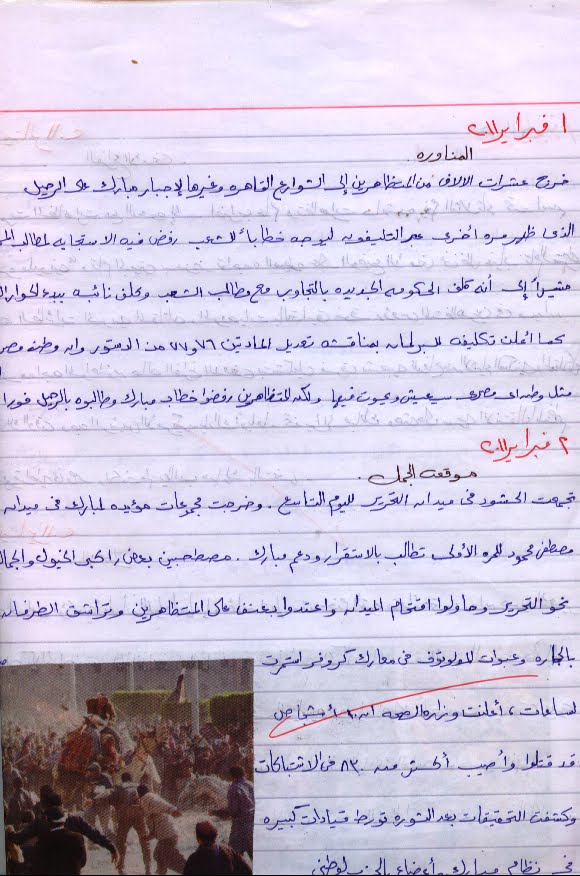 ١ فبراير ٢٠١١
المناوره
خرج عشرات الالاف من المتظاهرين إلى الشوارع القاهره وغيرها لإجبار مبارك على الرحيل
الذى ظهر مره أخرى عبر التليفزيون ليوجه خطاباً للشعب رفض فيه الاستجابه لمطالب
مشيراً إلى أنه كلف الحكومه الجديده بالتجاوب مع مطالب الشعب وكلف نائبه ببدء الحوار
كما أعلن تكليفه للبرلمان بمناقشه تعديل المادتين ٧٦ و ٧٧ من الدستور وان وطنه مصر
مثل وطن اى مصرى سيعيش ويموت فيها ولكن المتظاهرين رفضوا خطاب مبارك وطالبوه بالرحيل فورا
٢ فبراير ٢٠١١
موقعه الجمل
تجمعت الحشود فى ميدان التحرير لليوم التاسع . وخرجت مجموعات مؤيده لمبارك فى ميدان
مصطفى محمود للمره الأولى تطالب بالاستقرار ودعم مبارك . مصطحبين بعض راكبى الخيول والجمال
نحو التحرير وحاولوا اقتحام الميدان واعتدوا بعنف على المتظاهرين وتراشق الطرفان
بالحجاره وعبوات المولوتوف فى معارك كر وفر استمرت
لساعات ، أعلنت وزاره الصحه ان ١٠ أشخاص
قد قتلوا وأصيب أكثر من ٨٣٠ فى الاشتباكات
وكشفت التحقيقات بعد الثوره تورط قيادات كبيره
فى نظام مبارك وأعضاء بالحزب الوطنى